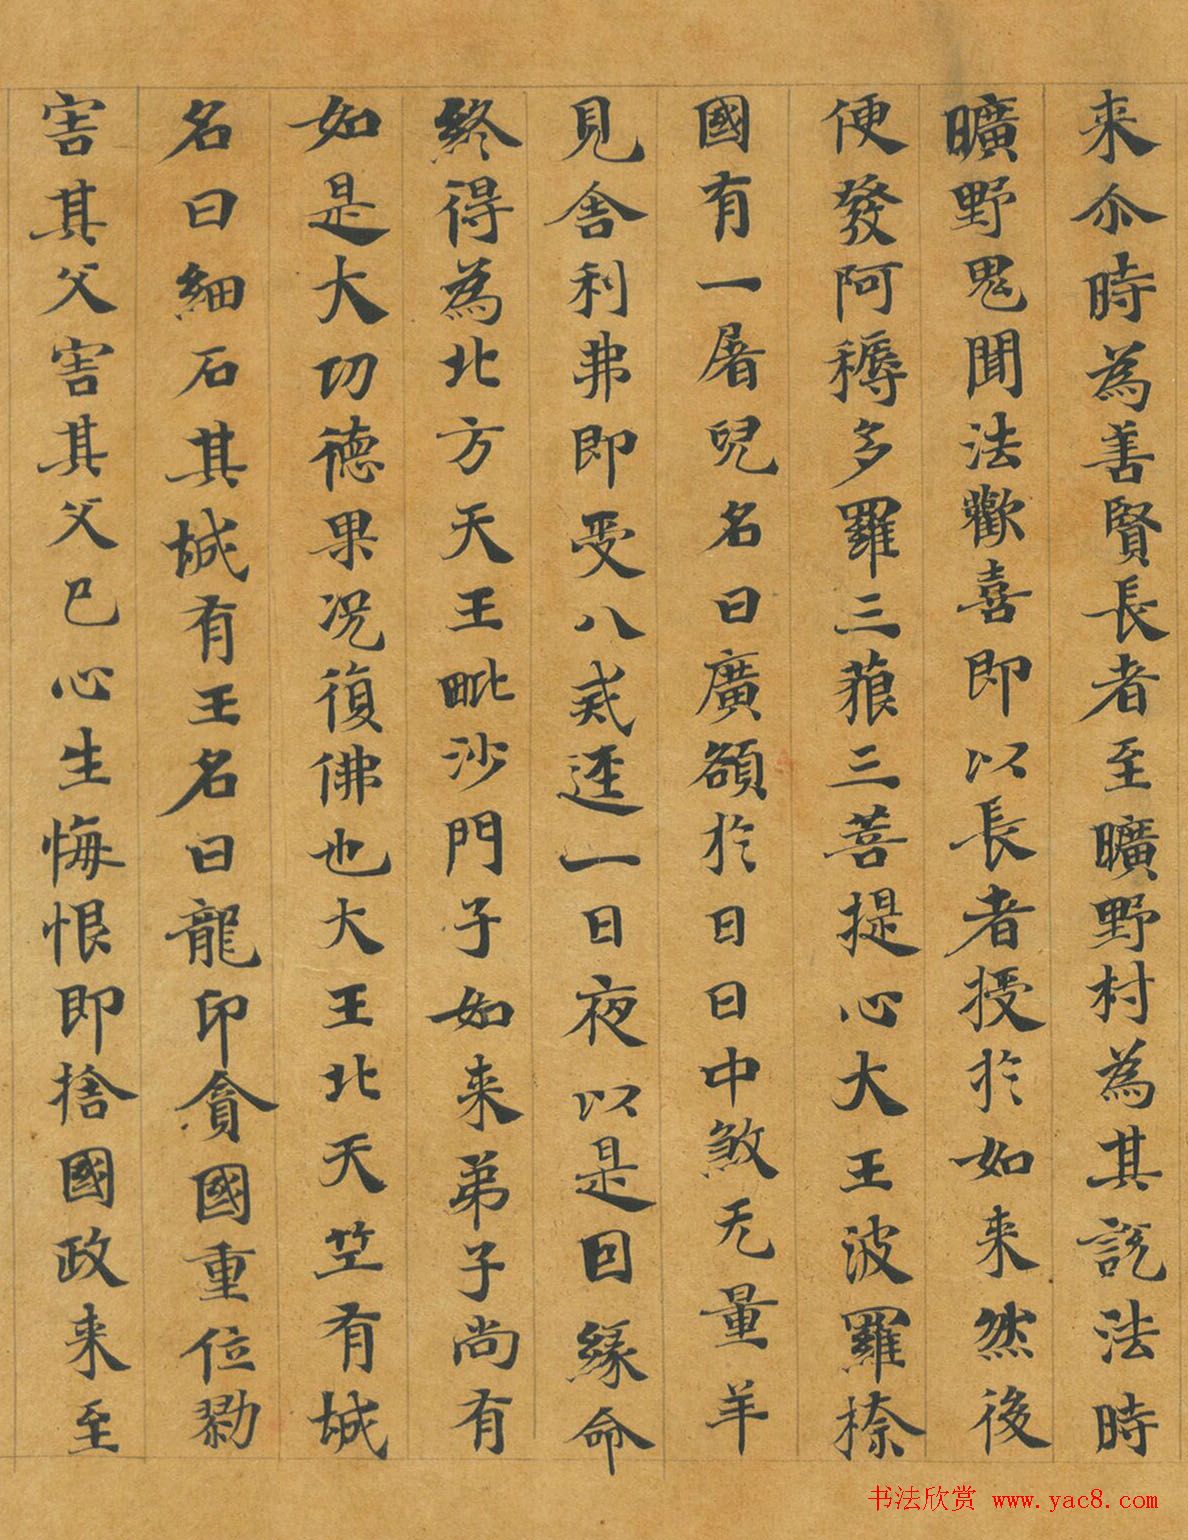 来尒時為善賢長者至曠野村為其說法時
曠野鬼聞法歡喜即以長者授於如来然後
便發阿耨多羅三藐三菩提心大王波羅㮈
國有一屠兒名曰廣額於日日中煞无量羊
見舍利弗即受八戒逕一日夜以是因緣命
終得為北方天王毗沙門子如来弟子尚有
如是大功德果况復佛也大王北天竺有城
名曰細石其城有王名曰龍印貪國重位勠
害其父害其父已心生悔恨即捨國政来至
书法欣赏 www.yac8.com